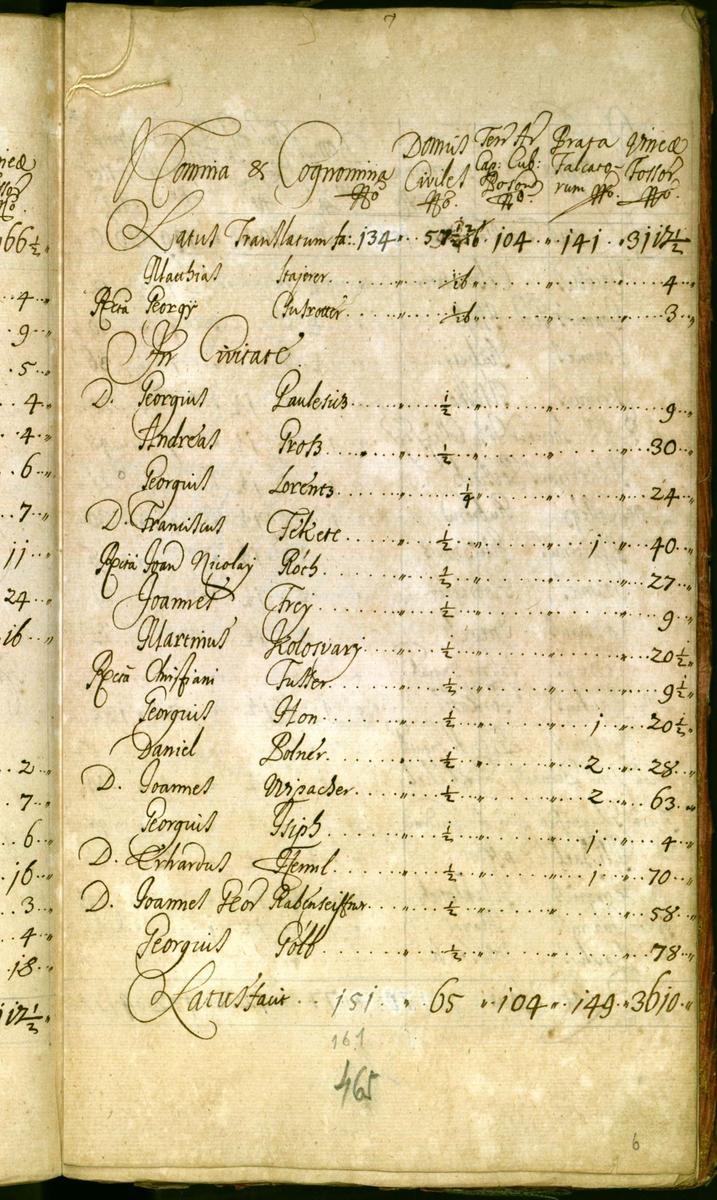 7
Nomina & Cognomina Domus Civiles Nro. Terr Ar Cap: Cub: Poson Nro. Prata Falcatorum Nro. Vineæ Fossor Nro.
Latus Translatum fa: 134 " 57 " 104 " 141 " 3117½
Matthias Stajerer " 1/16 " " 4 "
Rcta Georgÿ " 1/16 " " 3 "
In Civitate
D. Georgius Paulesius " ½ " " 9 "
Andreas Pross " ½ " " 30
Georgius Lorentz " ¼ " " 24
D. Franciscus Fekete " ½ " 1 " 40
Rcta Joan Nicolaj Röch " ½ " " 27
Joannes Frej " ½ " " 9
Martinus Kolosvarj " ½ " " 20½
Rcta Christiani " ½ " " 9½
Georgius Hon " ½ " 1 " 20½
Daniel Bolner " ½ " 2 " 28
D. Joannes " ½ " 2 " 63
Georgius " ½ " 1 " 4
D. Erhardus " ½ " 1 " 70
D. Joannes Geor " ½ " " 58
Georgius " ½ " " 78
Latus facit 151 " 65 " 104 " 149 " 3610
161
465
6
66½
4
9
5
4
4
6
7
11
24
16
2
7
6
16
3
4
18
117½